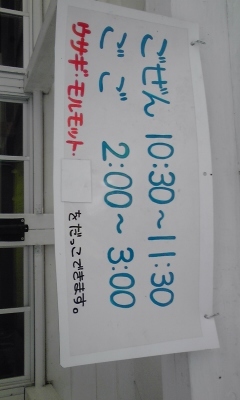 ごぜん 10:30～11:30
ごご 2:00～3:00
ウサギ・モルモット・
をだっこできます。